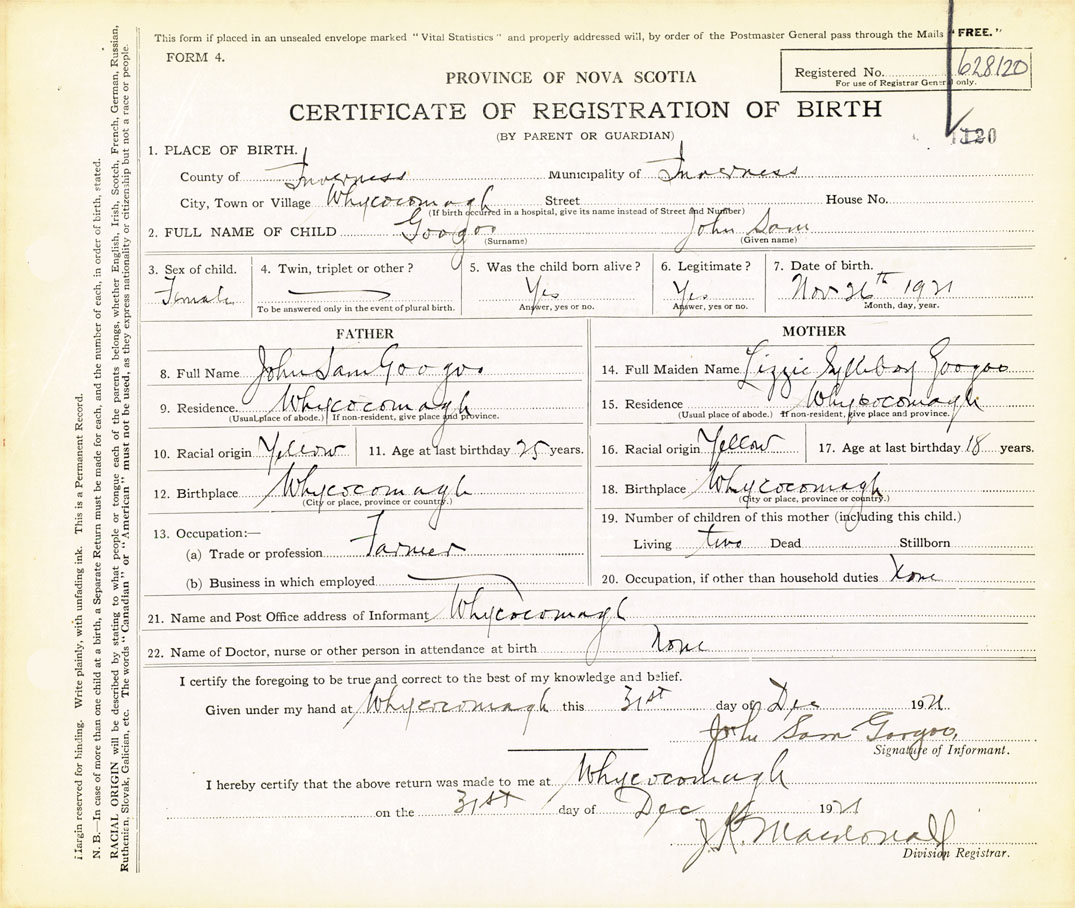 This form if placed in an unsealed envelope marked "Vital Statistics" and properly addressed will, by order of the Postmaster General pass through the Mails "FREE."
FORM 4.
Registered No. 628120
For use of Registrar General only.
PROVINCE OF NOVA SCOTIA
CERTIFICATE OF REGISTRATION OF BIRTH
(BY PARENT OR GUARDIAN)
1. PLACE OF BIRTH.
County of Inverness Municipality of Inverness
City, Town or Village Whycocomagh Street House No.
(If birth occurred in a hospital, give its name instead of Street and Number)
2. FULL NAME OF CHILD Googoo John Sam
(Surname) (Given name)
3. Sex of child. 4. Twin, triplet or other? 5. Was the child born alive? 6. Legitimate? 7. Date of birth.
Female Yes Yes Nov 26th 1921
To be answered only in the event of plural birth. Answer, yes or no. Answer, yes or no. Month, day, year.
FATHER
8. Full Name John Sam Googoo
9. Residence. Whycocomagh
(Usual place of abode.) If non-resident, give place and province.
10. Racial origin Yellow 11. Age at last birthday 25 years.
12. Birthplace Whycocomagh
(City or place, province or country.)
13. Occupation:—
(a) Trade or profession Farmer
(b) Business in which employed
MOTHER
14. Full Maiden Name Lizzie Sylliboy Googoo
15. Residence Whycocomagh
(Usual place of abode.) If non-resident, give place and province.
16. Racial origin Yellow 17. Age at last birthday 18 years.
18. Birthplace Whycocomagh
(City or place, province or country.)
19. Number of children of this mother (including this child.)
Living two Dead Stillborn
20. Occupation, if other than household duties None
21. Name and Post Office address of Informant Whycocomagh
22. Name of Doctor, nurse or other person in attendance at birth None
I certify the foregoing to be true and correct to the best of my knowledge and belief.
Given under my hand at Whycocomagh this 31st day of Dec 1921.
John Sam Googoo.
Signature of Informant.
I hereby certify that the above return was made to me at Whycocomagh
on the 31st day of Dec 1921
J. K. Macdonald
Division Registrar.
Margin reserved for binding. Write plainly, with unfading ink. This is a Permanent Record.
N. B.—In case of more than one child at a birth, a Separate Return must be made for each, and the number of each, in order of birth, stated.
RACIAL ORIGIN will be described by stating to what people or tongue each of the parents belongs, whether English, Irish, Scotch, French, German, Russian,
Ruthenian, Slovak, Galician, etc. The words "Canadian" or "American" must not be used, as they express nationality or citizenship but not a race or people.